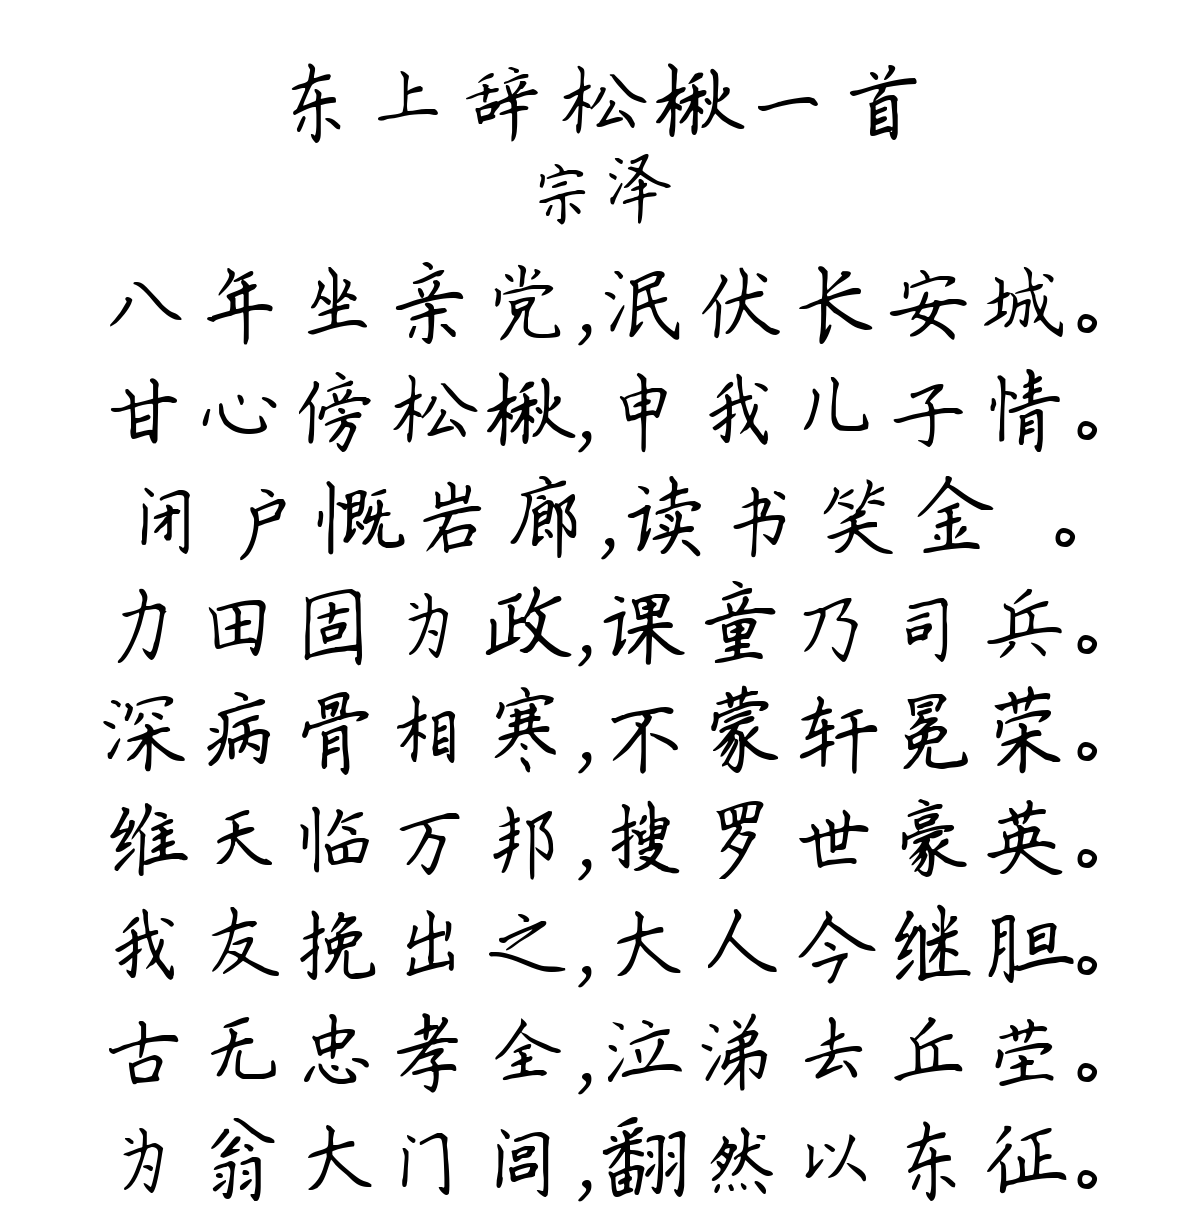 东上辞松楸一首
宗泽
八年坐亲党,泯伏长安城。
甘心傍松楸,申我儿子情。
闭户慨岩廊,读书笑金 。
力田固为政,课童乃司兵。
深病骨相寒,不蒙轩冕荣。
维天临万邦,搜罗世豪英。
我友挽出之,大人今继胆。
古无忠孝全,泣涕去丘茔。
为翁大门闾,翻然以东征。